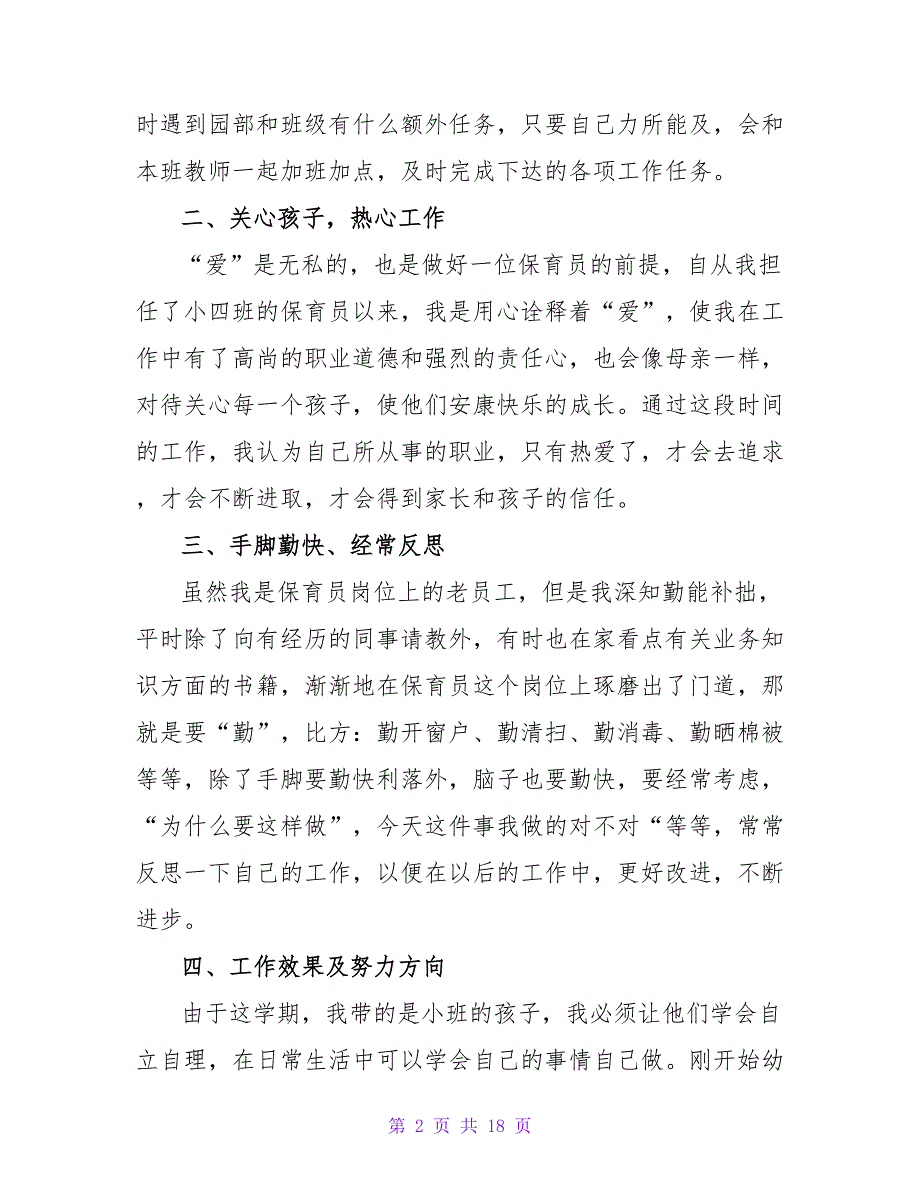 时遇到园部和班级有什么额外任务，只要自己力所能及，会和
本班教师一起加班加点，及时完成下达的各项工作任务。
二、关心孩子，热心工作
“爱”是无私的，也是做好一位保育员的前提，自从我担
任了小四班的保育员以来，我是用心诠释着“爱”，使我在工
作中有了高尚的职业道德和强烈的责任心，也会像母亲一样，
对待关心每一个孩子，使他们安康快乐的成长。通过这段时间
的工作，我认为自己所从事的职业，只有热爱了，才会去追求
，才会不断进取，才会得到家长和孩子的信任。
三、手脚勤快、经常反思
虽然我是保育员岗位上的老员工，但是我深知勤能补拙，
平时除了向有经历的同事请教外，有时也在家看点有关业务知
识方面的书籍，渐渐地在保育员这个岗位上琢磨出了门道，那
就是要“勤”，比方：勤开窗户、勤清扫、勤消毒、勤晒棉被
等等，除了手脚要勤快利落外，脑子也要勤快，要经常考虑，
“为什么要这样做”，今天这件事我做的对不对“等等，常常
反思一下自己的工作，以便在以后的工作中，更好改进，不断
进步。
四、工作效果及努力方向
由于这学期，我带的是小班的孩子，我必须让他们学会自
立自理，在日常生活中可以学会自己的事情自己做。刚开始幼
第 2 页 共 18 页